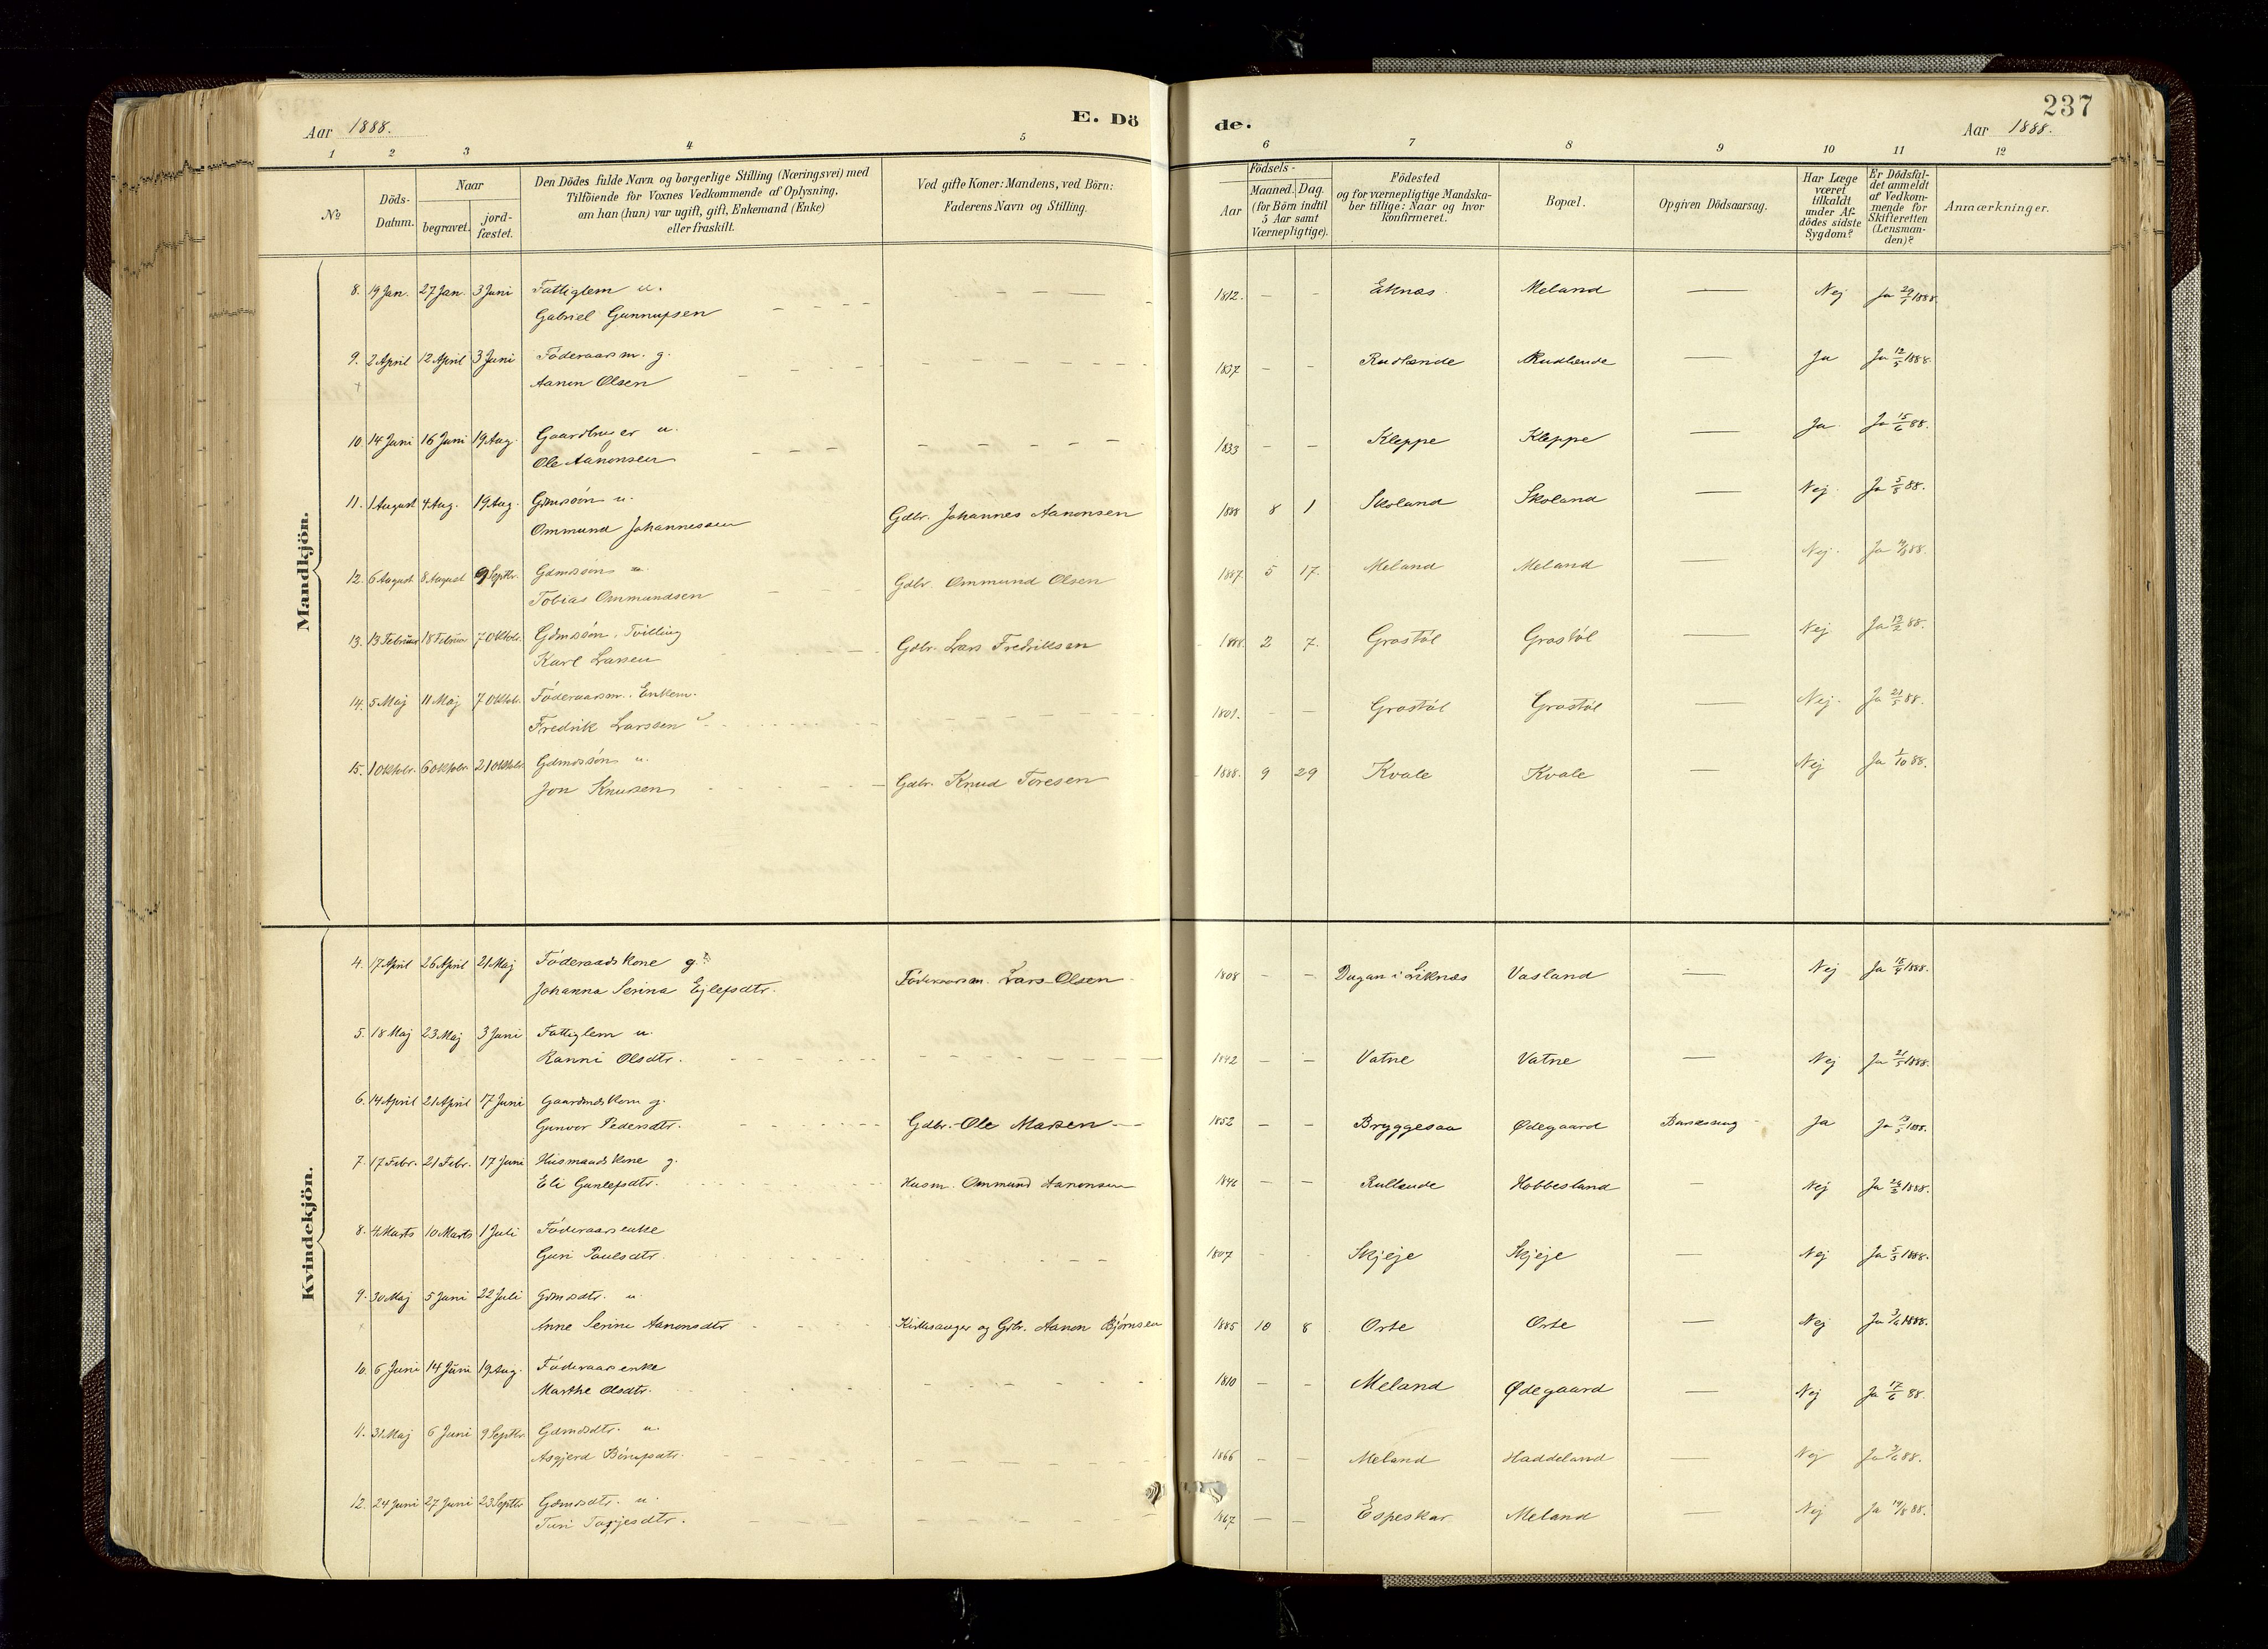 237
Aar 1888.
E. Dö
de.
Aar 1888.
1 2 3 4 5 6 7 8 9 10 11 12
№
Döds-
Datum.
Naar
begravet.
jord-
fæstet.
Den Dödes fulde Navn og borgerlige Stilling (Næringsvei) med
Tilföiende for Voxnes Vedkommende af Oplysning,
om han (hun) var ugift, gift, Enkemand (Enke)
eller fraskilt.
Ved gifte Koner: Mandens, ved Börn:
Faderens Navn og Stilling.
Födsels-
Aar
Maaned. Dag.
(for Börn indtil
5 Aar samt
Værnepligtige).
Födested
og for værnepligtige Mandska-
ber tillige: Naar og hvor
konfirmeret.
Bopæl.
Opgiven Dödsaarsag.
Har Læge
været
tilkaldt
under Af-
dödes sidste
Sygdom?
Er Dödsfal-
det anmeldt
af Vedkom-
mende for
Skifteretten
(Lensman-
den)?
Anmærkninger.
Mandkjön.
8. 19 Jan. 27 Jan. 3 Juni Fattiglem u. 1812. – – Meland — Nej Ja 29/1 1888.
Gabriel Gunnufsen
9. 2 April 12 April 3 Juni Föderaasm. g. 1837 – – Rudlænde Rudlænde — Ja Ja 12/5 1888.
Aanon Olsen
10. 14 Juni 16 Juni 19 Aug. Gaardbruger u. 1833 – – Kleppe Kleppe — Ja Ja 15/6 88.
Ole Aanonsen
11. 1 August 4 Aug. 19 Aug. Gdmssön u. 1888 8 1 Skoland Skoland — Nej Ja 5/8 88.
Ommund Johannessen Gdbr. Johannes Aanonsen
12. 6 August 8 August 9 Septbr. Gdmssön u. 1887. 5 17. Meland Meland — Nej. Ja 88.
Tobias Ommundsen Gdbr. Ommund Olsen
13. 13 Februar 18 Februar 7 Oktobr. Gdmssön. Tvilling 1888. 2 7. Grostöl Grostöl — Nej Ja 19/2 88.
Karl Larsen Gdbr. Lars Fredriksen
14. 5 Maj 11 Maj 7 Oktobr. Föderaasm. Enkem. 1801. – – Grostöl Grostöl — Nej. Ja 21/5 88.
Fredrik Larssen
15. 1 Oktobr. 6 Oktobr. 21 Oktobr. Gdmssön u. 1888. 9 29 Kvale Kvale — Nej Ja 1/10 88.
Jon Knudsen Gdbr. Knud Toresen
Kvindekjön.
4. 17 April 26 April 21 Maj Föderaadskone g. 1808 – – Dugan i Liknæs Vasland — Nej Ja 1888.
Johanna Serina Ejlefsdtr. Föderaasm. Lars Olsen
5. 18 Maj 23 Maj 3 Juni Fattiglem u. 1842 – – Vatne Vatne — Nej Ja 21/5 1888.
Ranni Olsdtr.
6. 14 April 21 April 17 Juni Gaardmdskone g. 1852 – – Bryggesaa Ødegaard Ja Ja 1888.
Gunvor Pedersdtr. Gdbr. Ole
7. 17 Febr. 21 Febr. 17 Juni Husmandskone g. 1846 – – Hobbesland – Nej Ja 1888.
Eli Gunlefsdtr. Husm. Ommund Aanonsen
8. 4 Marts 10 Marts 1 Juli Föderaasenke 1807 Skjeje Skjeje — Nej Ja 5/3 1888.
Guri Paulsdtr.
9. 30 Maj 5 Juni 22 Juli Gdmsdtr. u. 1885 10 8 Orte Orte — Nej Ja 3/6 1888.
Anne Serine Aanonsdtr Kirkesanger og Gdbr. Aanon Bjørnsen
10. 6 Juni 14 Juni 19 Aug. Föderaasenke 1810 – – Meland Ødegaard — Nej Ja 17/6 88.
Marthe Olsdtr.
11. 31 Maj 6 Juni 9 Septbr Gdmdsdtr. u. 1866 – – Meland Haddeland — Nej Ja 3/6 88.
Asgjerd
12. 24 Juni 27 Juni 23 Septbr Gdmdsdtr. u. 1867 — — Espeskar Meland — Nej Ja 88.
Turi Tarjesdtr.